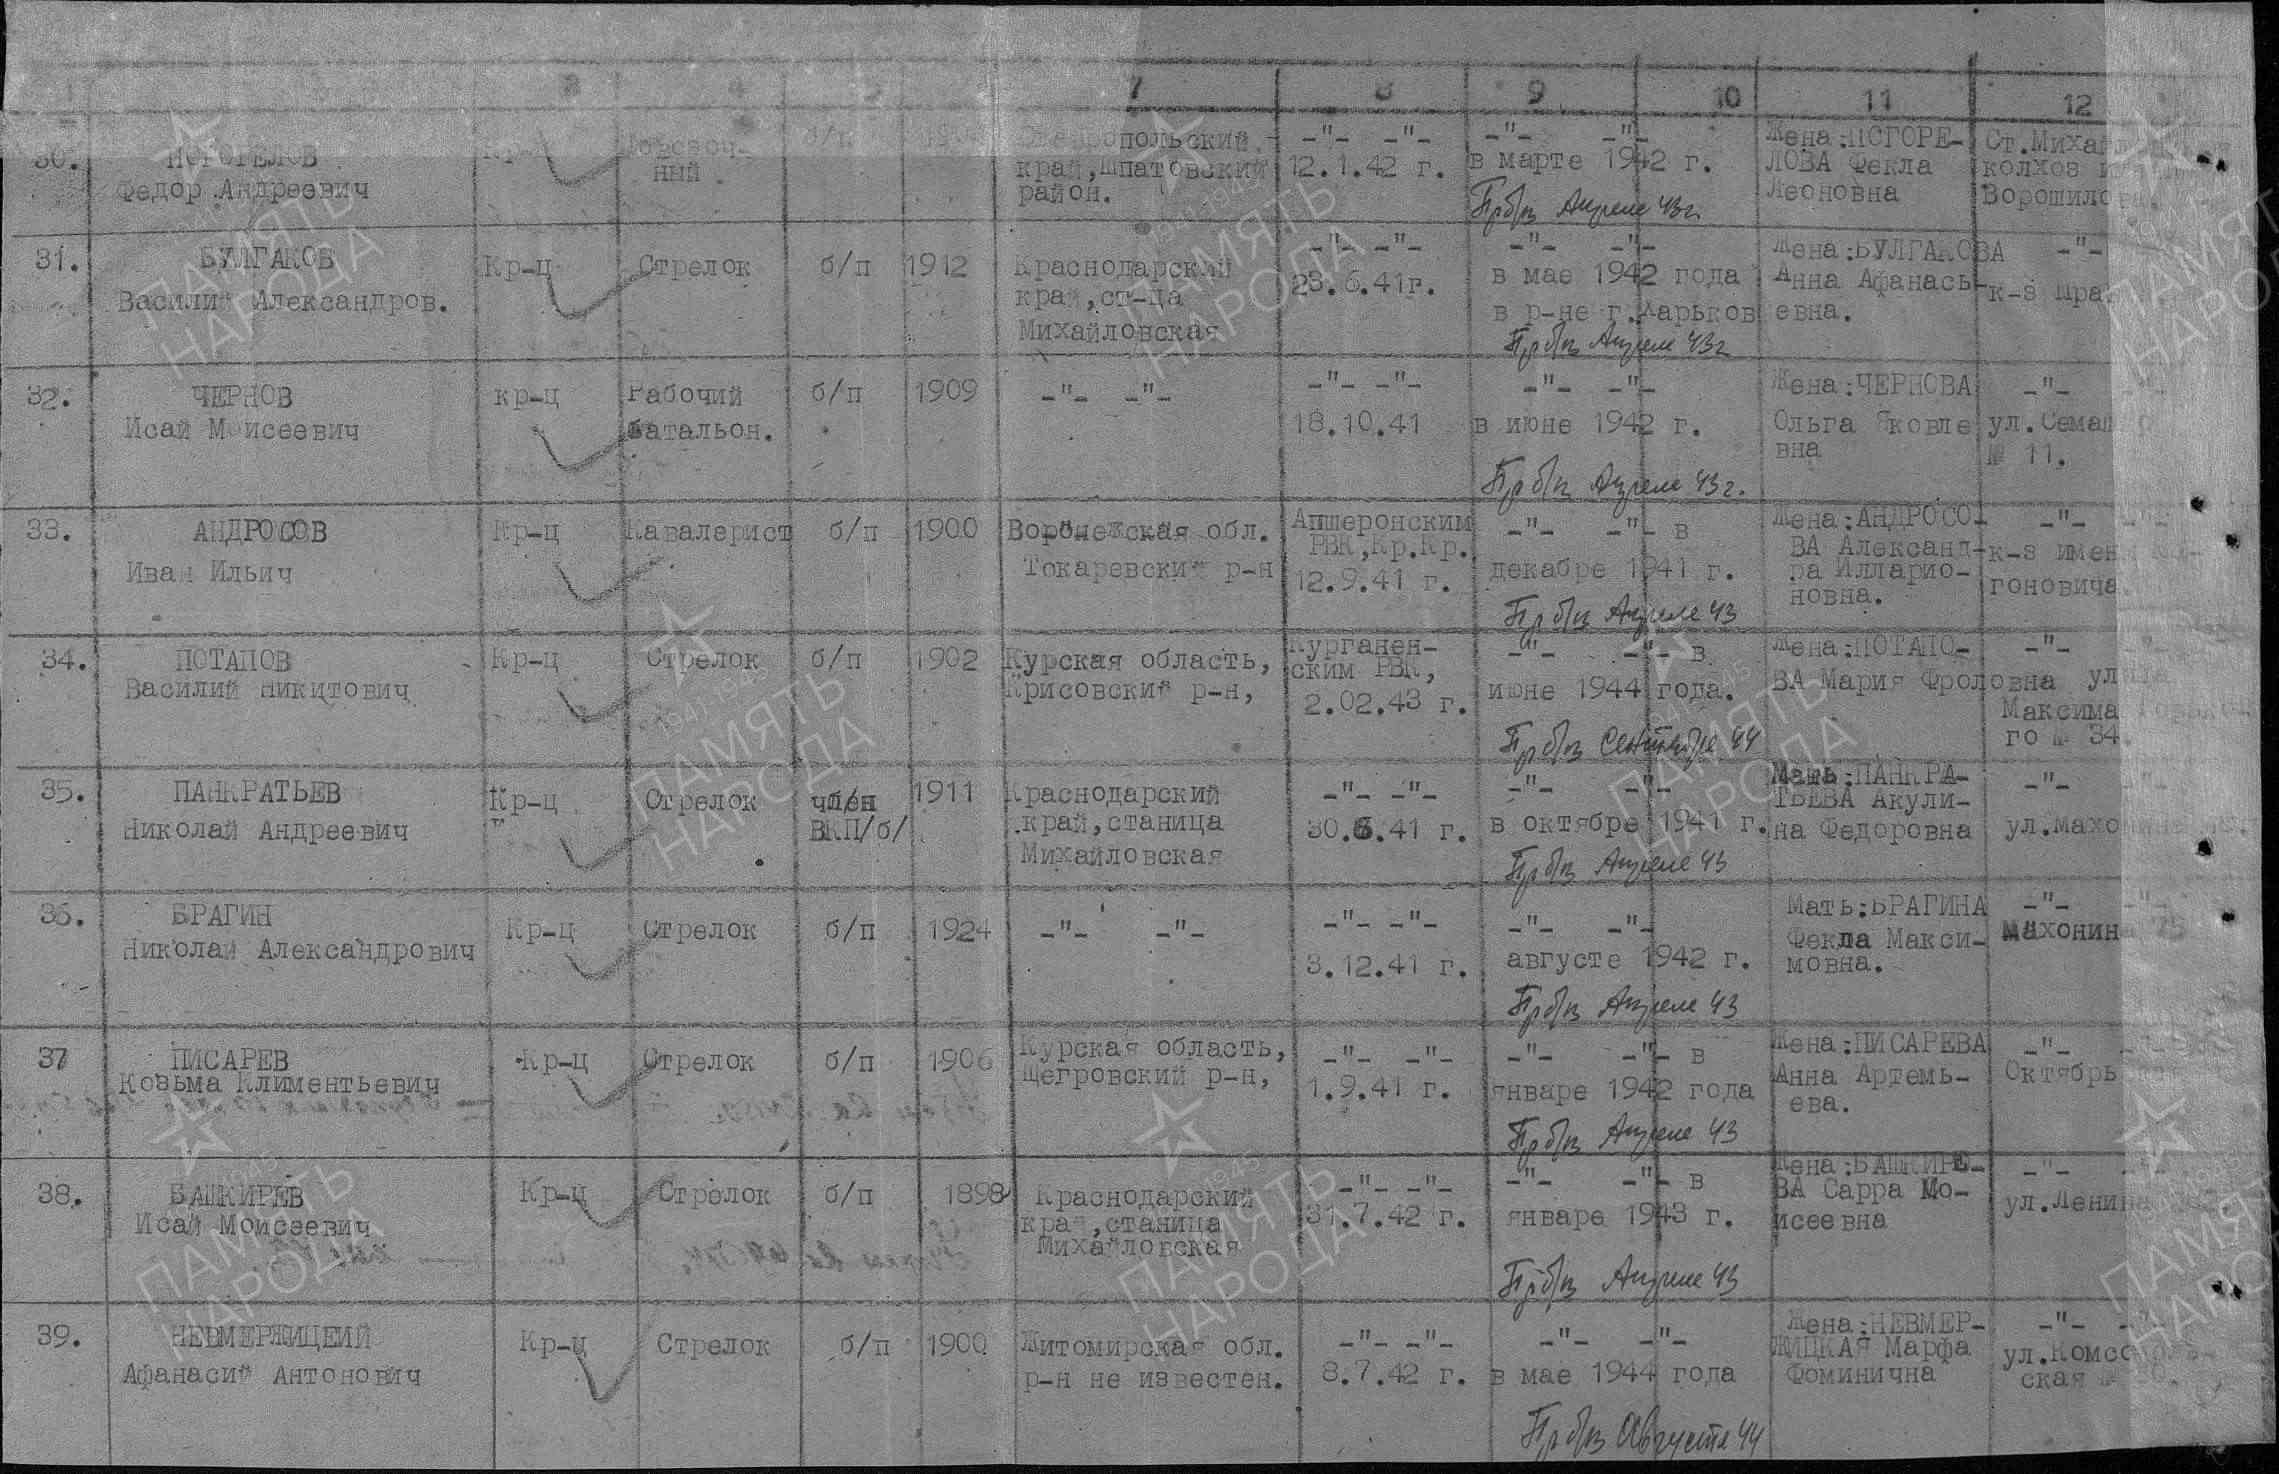 7 8 9 10 11 12
30. ПОГОРЕЛОВ б/п польский -"- -"- -"- -"- Жена:ПОГОРЕ- Ст.Михай
Федор Андреевич ный край,Ипатовский 12.1.42 г. в марте 1942 г. ЛОВА Фекла колхоз
район. Пр б/п Апреле 43г. Леоновна Ворошилова
31. БУЛГАКОВ Кр-ц Стрелок б/п 1912 Краснодарский -"- -"- -"- -"- Жена:БУЛГАКОВА -"-
Василий Александров. край,ст-ца 23.6.41г. в мае 1942 года Анна Афанась- к-з
Михайловская в р-не г.Харьков евна.
Пр б/п Апреле 43г
32. ЧЕРНОВ кр-ц Рабочий б/п 1909 -"- -"- -"- -"- -"- -"- Жена:ЧЕРНОВА -"-
Исай Моисеевич батальон. 18.10.41 в июне 1942 г. Ольга Яковле ул.
вна № 11.
Пр б/п Апреле 43г.
33. АНДРОСОВ Кр-ц Кавалерист б/п 1900 Воронежская обл. Апшеронским -"- -"- в Жена:АНДРОСО- -"- -"-
Иван Ильич Токаревский р-н РВК,Кр.Кр. декабре 1941 г. ВА Александ- к-з имени Ка-
12.9.41 г. ра Илларио- гоновича.
новна.
Пр б/п Апреле 43
34. ПОТАПОВ Кр-ц Стрелок б/п 1902 Курская область, Курганен- -"- -"- в Жена:ПОТАПО- -"- -"-
Василий Никитович Крисовский р-н, ским РВК, июне 1944 года. ВА Мария Фроловна улица
2.02.43 г. Максима Горько
го № 34.
Пр б/п Сентября 44
35. ПАНКРАТЬЕВ Кр-ц Стрелок член 1911 Краснодарский -"- -"- -"- -"- Мать:ПАНКРА- -"- -"-
Николай Андреевич ВКП/б/ край,станица 30.6.41 г. в октябре 1941 г. ТЬЕВА Акули-
Михайловская на Федоровна ул.Махонина
Пр б/п Апреле 43
36. БРАГИН Кр-ц Стрелок б/п 1924 -"- -"- -"- -"- -"- -"- Мать:БРАГИНА -"- -"-
Николай Александрович 3.12.41 г. августе 1942 г. Фекла Макси- Махонина 75
мовна.
Пр б/п Апреле 43
37 ПИСАРЕВ Кр-ц Стрелок б/п 1906 Курская область, -"- -"- -"- -"- в Жена:ПИСАРЕВА -"-
Козьма Климентьевич Щегровский р-н, 1.9.41 г. январе 1942 года Анна Артемь- Октябрь
ева.
Пр б/п Апреле 43
38. БАШКИРЕВ Кр-ц Стрелок б/п 1898 Краснодарский -"- -"- -"- -"- в Жена:БАШКИРЕ- -"-
Исай Моисеевич край,станица 31.7.42 г. январе 1943 г. ВА Сарра Мо- ул.Ленина
Михайловская исеевна
Пр б/п Апреле 43
39. НЕВМЕРЖИЦКИЙ Кр-ц Стрелок б/п 1900 Житомирская обл. -"- -"- -"- -"- Жена:НЕВМЕР- -"- -"-
Афанасий Антонович р-н не известен. 8.7.42 г. в мае 1944 года ЖИЦКАЯ Марфа ул.
Фоминична ская №
Пр б/п Августа 44
ПАМЯТЬ
НАРОДА
1941-1945